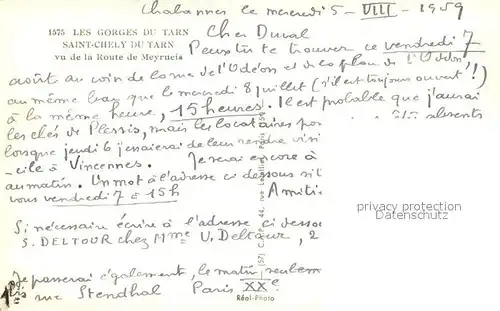 Chabannes le mercredi 5 - VIII - 1959
1575 LES GORGES DU TARN
SAINT-CHELY DU TARN
vu de la Route de Meyrueis
Cher Duval
Peux tu te trouver ce vendredi 7
août au coin de la rue de l'Odéon et de la place de l'Odéon,
au même banc que le mercredi 8 juillet (s'il est toujours ouvert !)
à la même heure, 15 heures. Il est probable que j'aurai
les clés de Plessis, mais les locataires absents
lorsque jeudi 6 j'essaierai de leur rendre visi
-cile à Vincennes. Je serai encore à
au matin. Un mot à l'adresse ci dessous si t
vous vendredi 7 à 15h Amiti
privacy protection
Datenschutz
Si nécessaire écrire à l'adresse ci dessou
S. DELTOUR chez Mme V. Deltour, 2
Je passerai également, le matin, seulem
rue Stendhal Paris XXe.
Réal-Photo